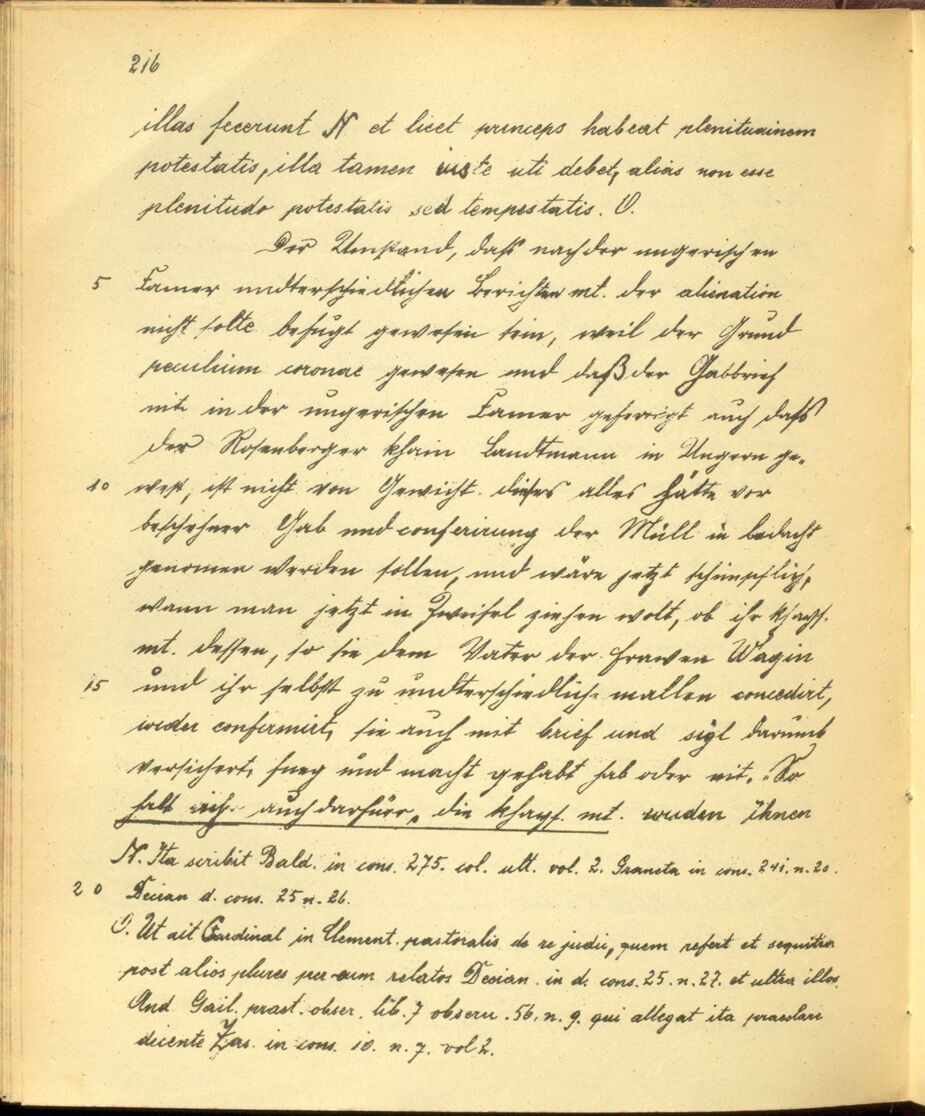 216
illas fecerunt N et licet princeps habeat plenitudinem
potestatis, illa tamen iuste uti debet, alias non esse
plenitudo potestatis sed tempestatis. O.
Der Umstand, daß nach der ungerischen
5 Camer undterschiedlichen Berichten mt. der alienation
nicht solte befugt gewesen sein, weil der Grund
peculium coronae gewesen und daß der Gabbrief
nit in der ungerischen Camer gefertigt auch daß
der Rosenberger khain Landtmann in Ungern ge-
10 west, ist nicht von Gewicht. dieses alles hätte vor
beschehner Gab und conferirung der Müll in bedacht
genomen werden sollen, und wäre jetzt schimpflich,
wann man jetzt in Zweifel ziehen wolt, ob ihr khays.
mt. dessen, so sie dem Vater der Frawen Wagin
15 und ihr selbst zu undterschiedlich mallen concedirt,
wider confirmirt, sie auch mit brief und sigl darumb
versichert, fueg und macht gehabt hab oder nit. So
halt ich auch darfür, die khays. mt. wurden ihnen
N. Ita scribit Bald. in cons. 275. col. ult. vol. 2. in cons. 241. n. 20.
20 Decian d. cons. 25 n. 26.
O. Ut ait Cardinal in Clement. pastoralis de re judic, quem refert et sequitur
post alios plures per eum relatos Decian. in d. cons. 25. n. 27. et ultra illos
And Gail. pract. obser. lib. 7 observ. 56. n. 9. qui allegat ita praeclare
dicente Zas. in cons. 10. n. 7. vol 2.